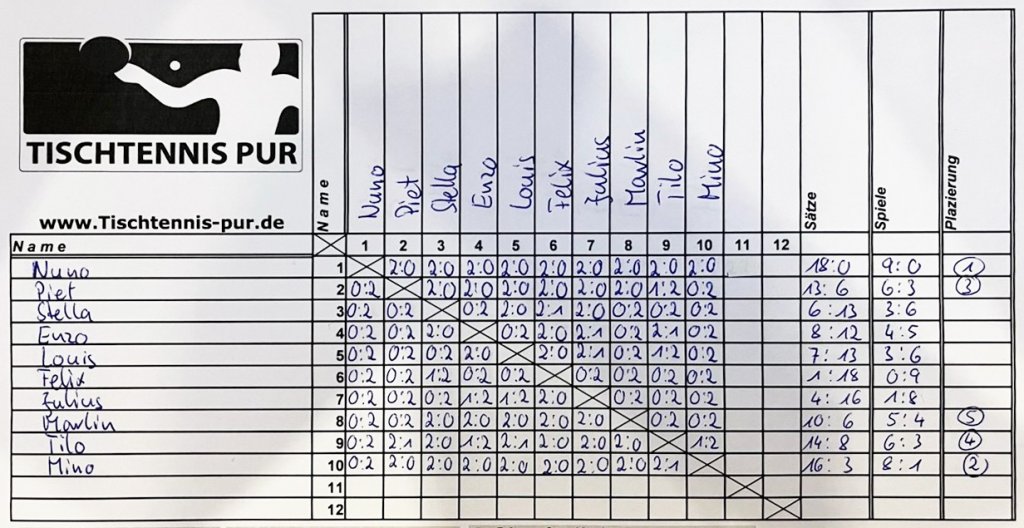 TISCHTENNIS PUR
www.Tischtennis-pur.de
Name Nuno Piet Stella Enzo Louis Felix Julius Marlin Tilo Mino Sätze Spiele Plazierung
Name 1 2 3 4 5 6 7 8 9 10 11 12
Nuno 1 2:0 2:0 2:0 2:0 2:0 2:0 2:0 2:0 2:0 18:0 9:0 1
Piet 2 0:2 2:0 2:0 2:0 2:0 2:0 2:0 1:2 0:2 13:6 6:3 3
Stella 3 0:2 0:2 0:2 2:0 2:1 2:0 0:2 0:2 0:2 6:13 3:6
Enzo 4 0:2 0:2 2:0 0:2 2:0 2:1 0:2 2:1 0:2 8:12 4:5
Louis 5 0:2 0:2 0:2 2:0 2:0 2:1 0:2 1:2 0:2 7:13 3:6
Felix 6 0:2 0:2 1:2 0:2 0:2 0:2 0:2 0:2 0:2 1:18 0:9
Julius 7 0:2 0:2 0:2 1:2 1:2 2:0 0:2 0:2 0:2 4:16 1:8
Marlin 8 0:2 0:2 2:0 2:0 2:0 2:0 2:0 0:2 0:2 10:6 5:4 5
Tilo 9 0:2 2:1 2:0 1:2 2:1 2:0 2:0 2:0 1:2 14:8 6:3 4
Mino 10 0:2 2:0 2:0 2:0 2:0 2:0 2:0 2:0 2:1 16:3 8:1 2
11
12